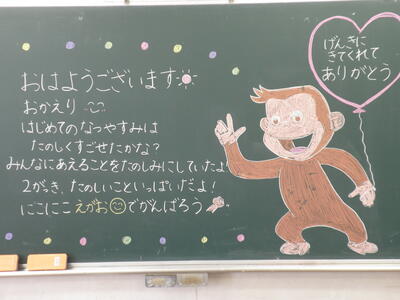 おはようございます
おかえり
はじめてのなつやすみは
たのしくすごせたかな？
みんなにあえることをたのしみにしていたよ！
2がっき、たのしいこといっぱいだよ！
にこにこえがおでがんばろう
げんきに
きてくれて
ありがとう